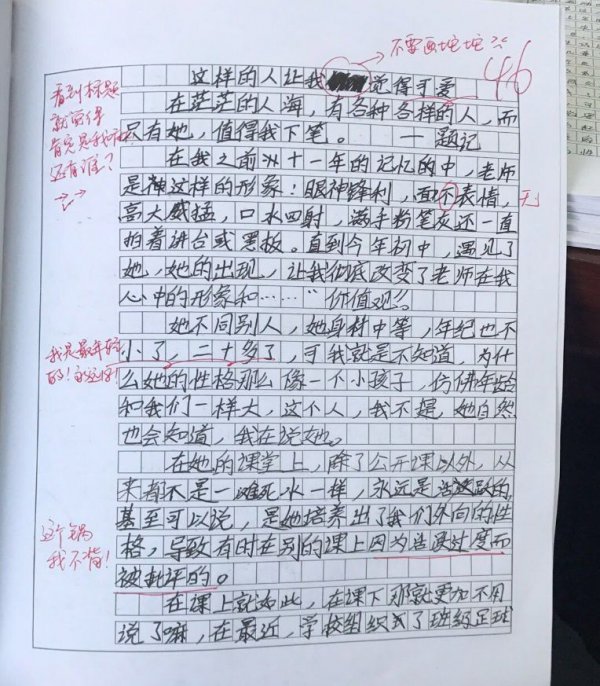 不要画坨坨
46
这样的人让我觉得可爱
看到标题
就觉得
肯定是我
还有谁？
在茫茫的人海，有各种各样的人，而
只有她，值得我下笔。 —题记
在我之前从十一年的记忆的中，老师
是神这样的形象：眼神锋利，面不表情，
无
高大威猛，口水四射，满手粉笔灰还一直
拍着讲台或黑板。直到今年初中，遇见了
她，她的出现，让我彻底改变了老师在我
心中的形象和……“价值观”。
她不同别人，她身材中等，年纪也不
我是最年轻
的！
小了，二十多了，可我就是不知道，为什
么她的性格那么像一个小孩子，仿佛年龄
和我们一样大，这个人，我不提，她自然
也会知道，我在说她。
在她的课堂上，除了公开课以外，从
来都不是一滩死水一样，永远是活跃的，
甚至可以说，是她培养出了我们外向的性
这个锅
我不背！
格，导致有时在别的课上因为活跃过度而
被批评的。
在课上就如此，在课下那就更加不用
说了嘛，在最近，学校组织了班级足球